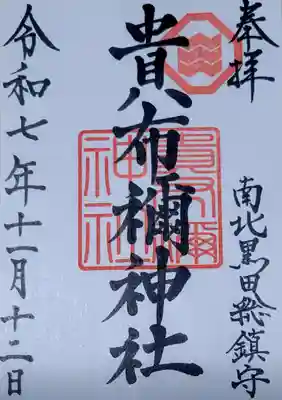 奉拝
南北黒田総鎮守
貴布禰神社
令和七年十一月十二日